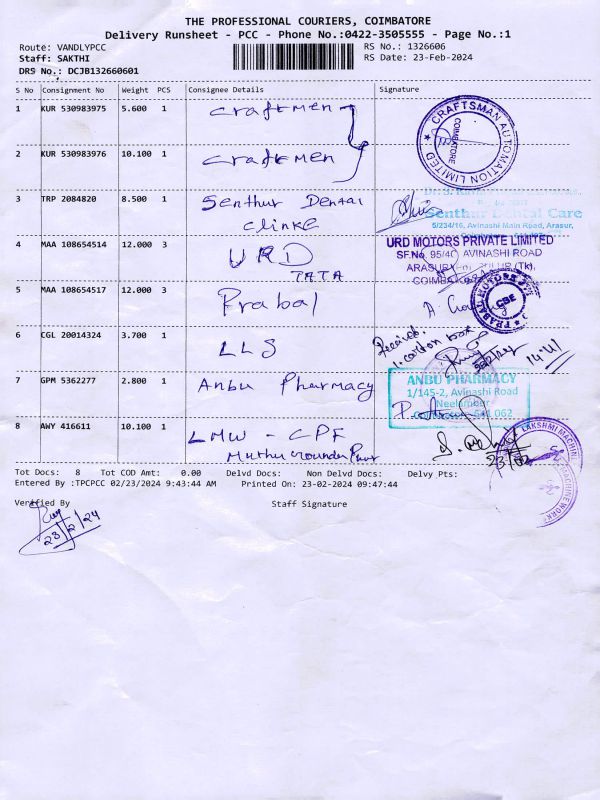 THE PROFESSIONAL COURIERS, COIMBATORE
Delivery Runsheet - PCC - Phone No.:0422-3505555 - Page No.:1
Route: VANDLYPCC RS No.: 1326606
Staff: SAKTHI RS Date: 23-Feb-2024
DRS No.: DCJB132660601
S No Consignment No Weight PCS Consignee Details Signature
1 KUR 530983975 5.600 1 Craftmen
CRAFTSMAN AUTOMATION LIMITED
COIMBATORE
2 KUR 530983976 10.100 1 Craftmen
3 TRP 2084820 8.500 1 Senthur Dental
Clinke
Senthur Dental Care
5/234/16, Avinashi Main Road, Arasur,
4 MAA 108654514 12.000 3 URD
TATA
URD MOTORS PRIVATE LIMITED
SF.No. 95/4C AVINASHI ROAD
5 MAA 108654517 12.000 3 Prabal
PRABAL MOTORS
CBE
6 CGL 20014324 3.700 1 LLS
Received.
1. carton box
14:41
7 GPM 5362277 2.800 1 Anbu Pharmacy
ANBU PHARMACY
1/145-2, Avinashi Road
Neelambur
641 062
8 AWY 416611 10.100 1 LMW - CPF
23/02
LAKSHMI MACHINE WORKS
Tot Docs: 8 Tot COD Amt: 0.00 Delvd Docs: Non Delvd Docs: Delvy Pts:
Entered By :TPCPCC 02/23/2024 9:43:44 AM Printed On: 23-02-2024 09:47:44
Verified By Staff Signature
23/2/24